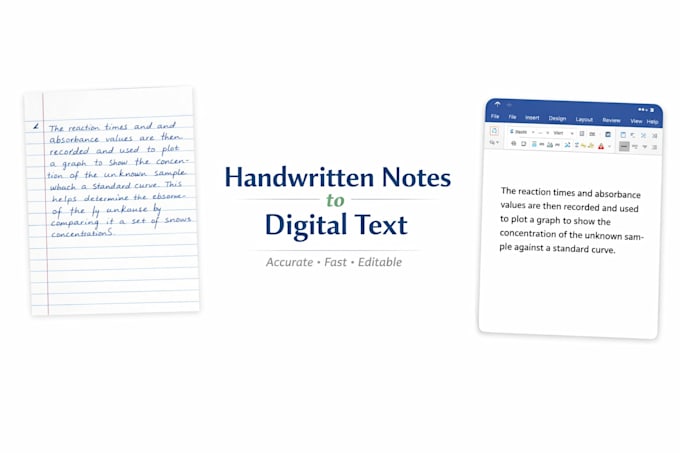 The reaction times and and
absorbance values are then
recorded and used to plot
a graph to show the concen-
tion of the unknown sample
whach a standard curve. This
helps determine the
of the by unkause by
comparing it a set of snows
concentrationS.
Handwritten Notes
to
Digital Text
Accurate • Fast • Editable
File File Insert Design Layout Review View Help
The reaction times and absorbance
values are then recorded and used
to plot a graph to show the
concentration of the unknown sam-
ple against a standard curve.